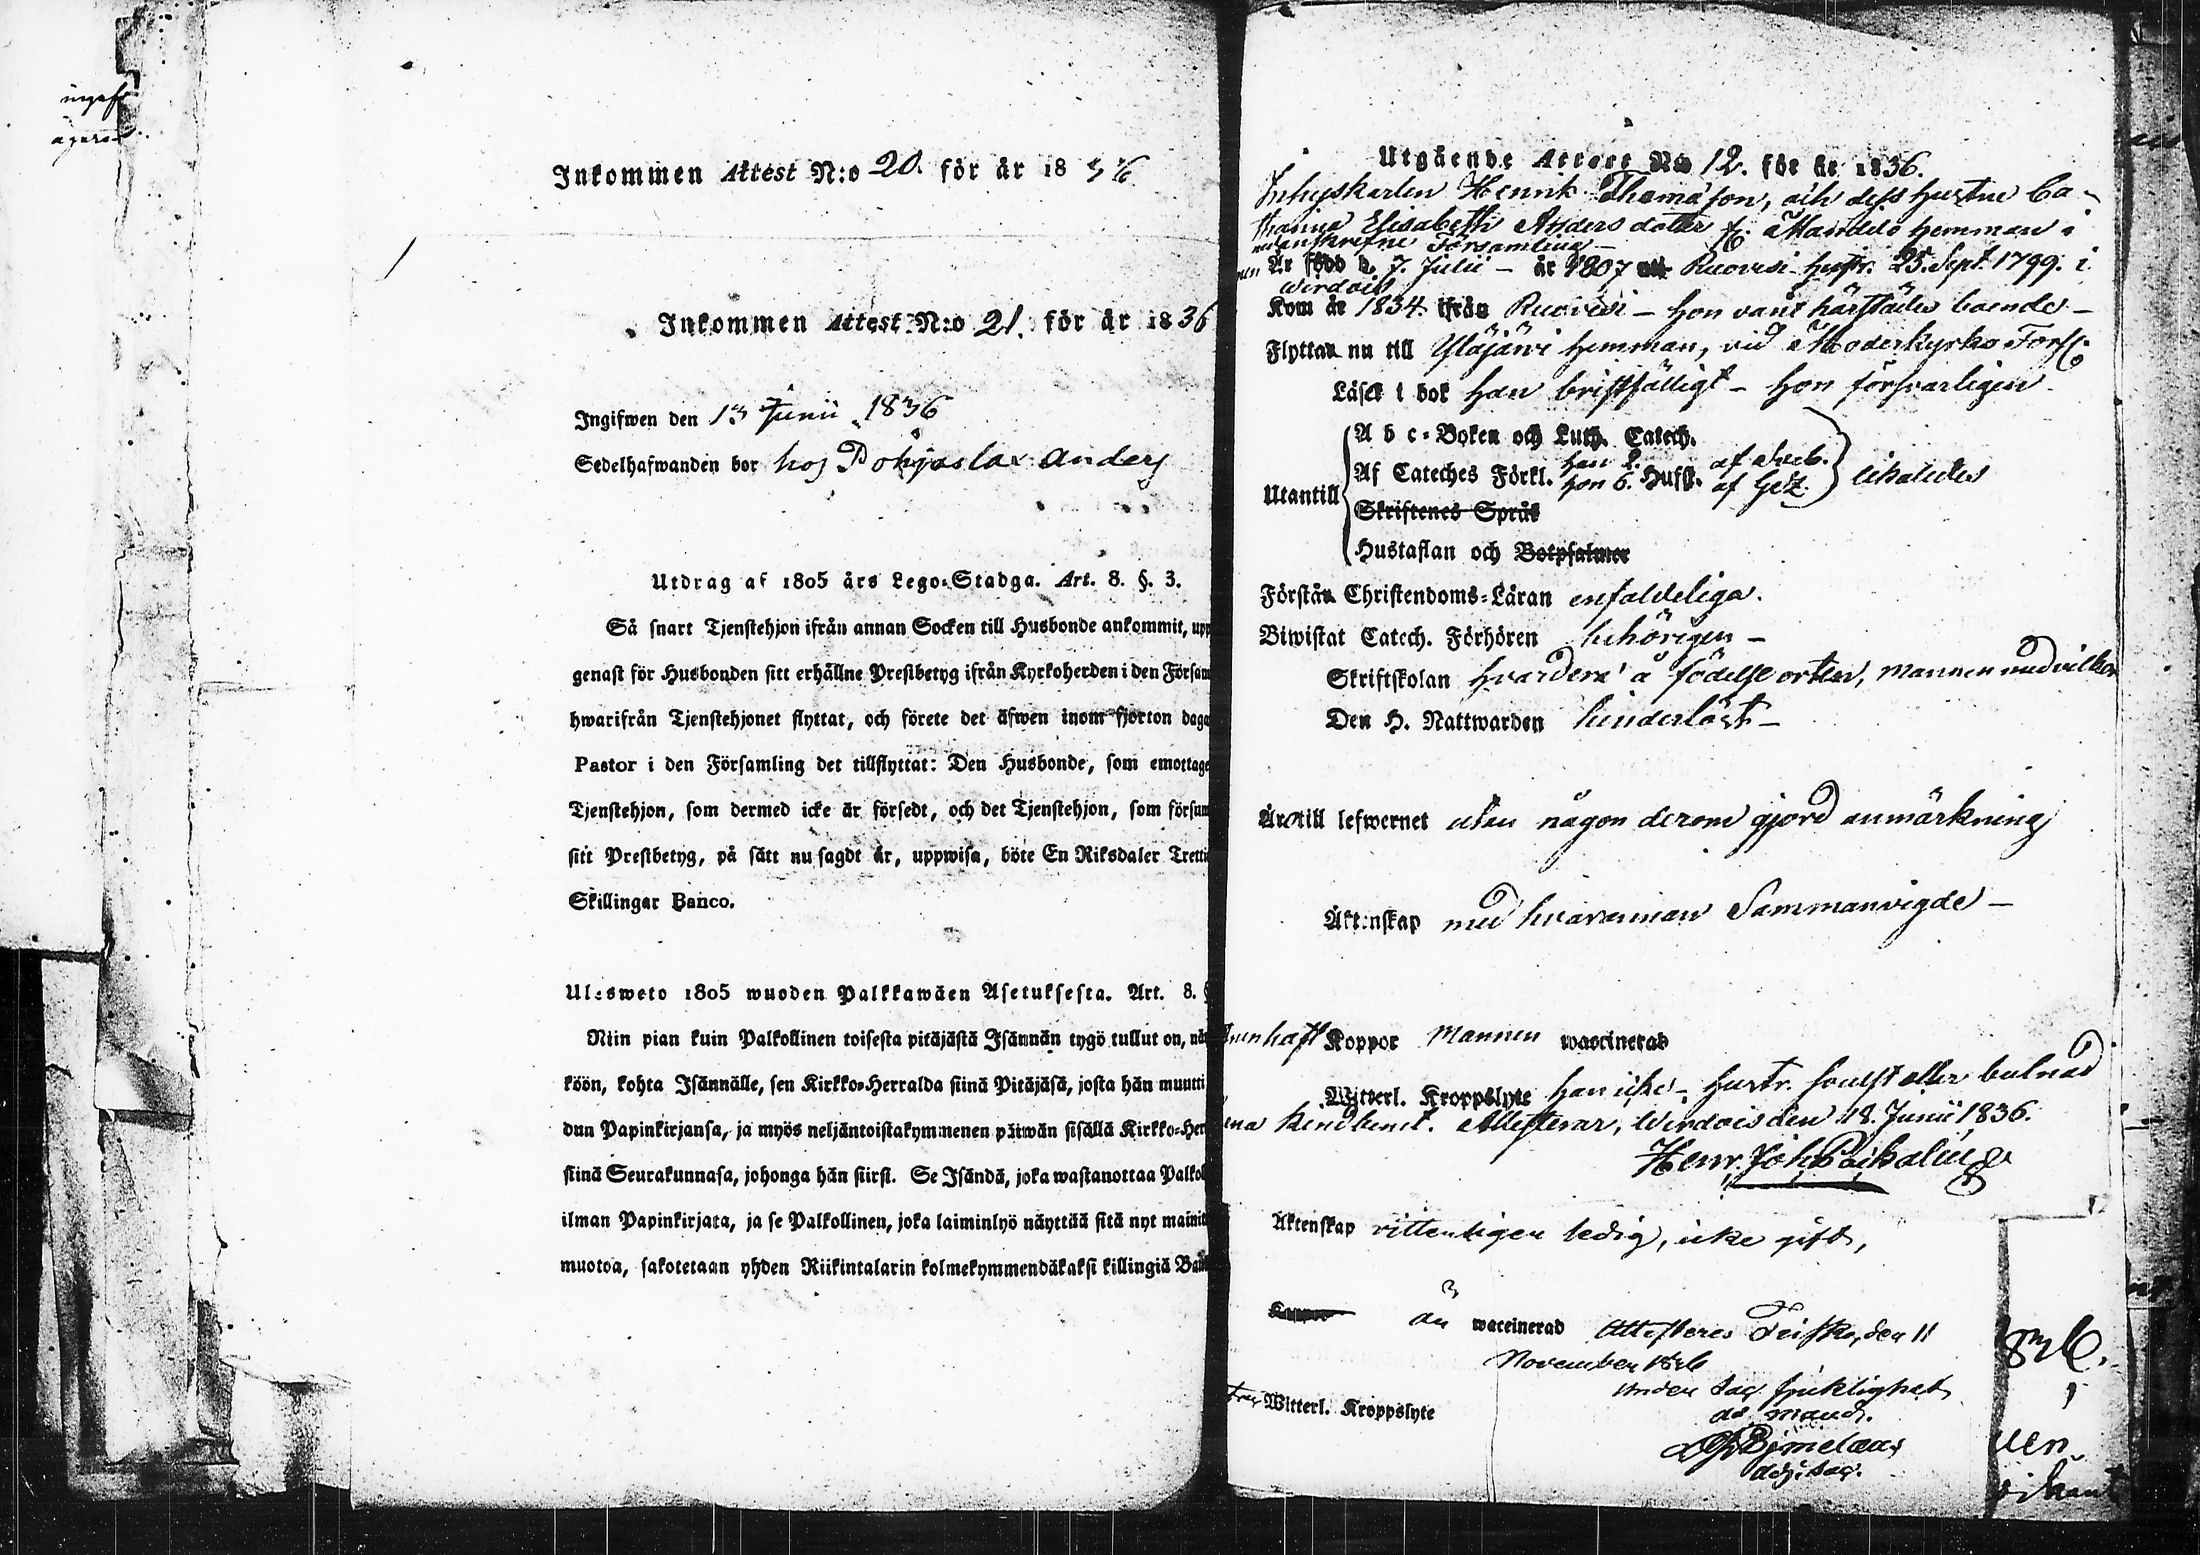 ägaren
Inkommen Attest N:o 20. för år 1836
Inkommen Attest N:o 21. för år 1836
Ingifwen den 13 Junii 1836
Sedelhafwanden bor hos Pohjaslax Anders
Utdrag af 1805 års Lego-Stadga. Art. 8. §. 3.
Så snart Tjenstehjon ifrån annan Socken till Husbonde ankommit, upp
genast för Husbonden sitt erhållne Prestbetyg ifrån Kyrkoherden i den Försam
hwarifrån Tjenstehjonet flyttat, och förete det äfwen inom fjorton daga
Pastor i den Församling det tillflyttat: Den Husbonde, som emottage
Tjenstehjon, som dermed icke är försedt, och det Tjenstehjon, som försum
sitt Prestbetyg, på sätt nu sagdt är, uppwisa, böte En Riksdaler Tretti
Skillingar Banco.
Ulosweto 1805 wuoden Palkkawäen Asetuksesta. Art. 8. §
Niin pian kuin Palkollinen toisesta pitäjästä Isännän tygö tullut on, näy
köön, kohta Isännälle, sen Kirkko-Herralda siinä Pitäjäsä, josta hän muutti
dun Papinkirjansa, ja myös neljäntoistakymmenen päiwän sisällä Kirkko-Her
siinä Seurakunnasa, johonga hän siirsi. Se Isändä, joka wastanottaa Palkol
ilman Papinkirjata, ja se Palkollinen, joka laiminlyö näyttää sitä nyt mainit
muotoa, sakotetaan yhden Riikintalarin kolmekymmendäkaksi killingiä Ban
Utgående Attest N:o 12. för år 1836.
Inhyskarlen Henrik Thomasson, och dess hustru Ca-
tharina Elisabeth Anders dotter fr. Mandelö hemman i
nedanskrefne Församling –
Är född d. 7. Julii – år 1807 Ruovesi hustr. 25. Sept. 1799. i
Wirdois
Kom år 1834. ifrån Ruovesi – hon varit härstädes boende –
Flyttar nu till Yläjärvi hemman, vid Moderkyrko Förs.
Läser i bok han bristfälligt – hon försvarligen
Utantill
A b c-Boken och Luth. Catech.
Af Cateches Förkl. han 2. hon 6. Hufst. af Sveb. af Gez. likaledes
Skriftenes Språk
Hustaflan och Botpsalmer
Förstår Christendoms-Läran enfaldeliga.
Biwistat Catech. Förhören behörigen –
Skriftskolan hvardera å födelse orten, mannen med vilkor
Den H. Nattwarden hinderlöst –
Äro till lefwernet utan någon derom gjord anmärkning
Äktenskap med hvarannan Sammanvigde –
Koppor mannen waccinerad
Witterl. Kroppslyte han icke – hustr. svulst eller bulnad
kindbenet. Attesterar, Wirdois den 18. Junii 1836.
Äktenskap vitterligen ledig, icke gift,
Koppor är waccinerad Attesteres Teisko, den 11
November 1836
Witterl. Kroppslyte